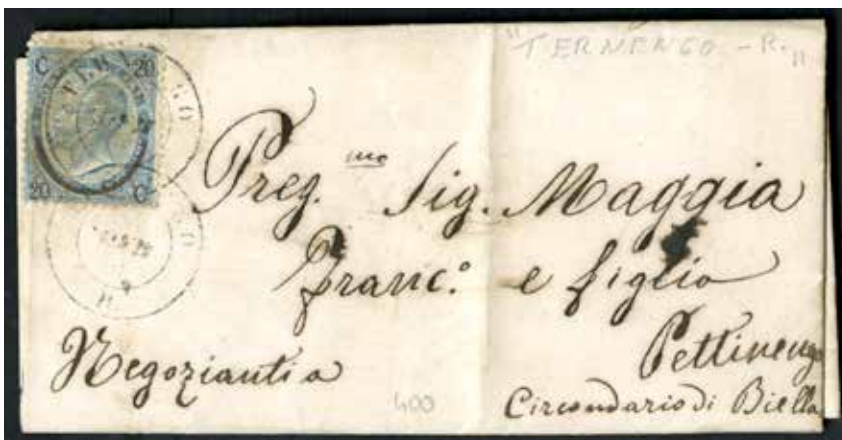 "TERNENGO - R."
C 20
20 C
Preg.mo Sig. Maggia
Franc.o e figlio
Negozianti a Pettinengo
Circondario di Biella
400